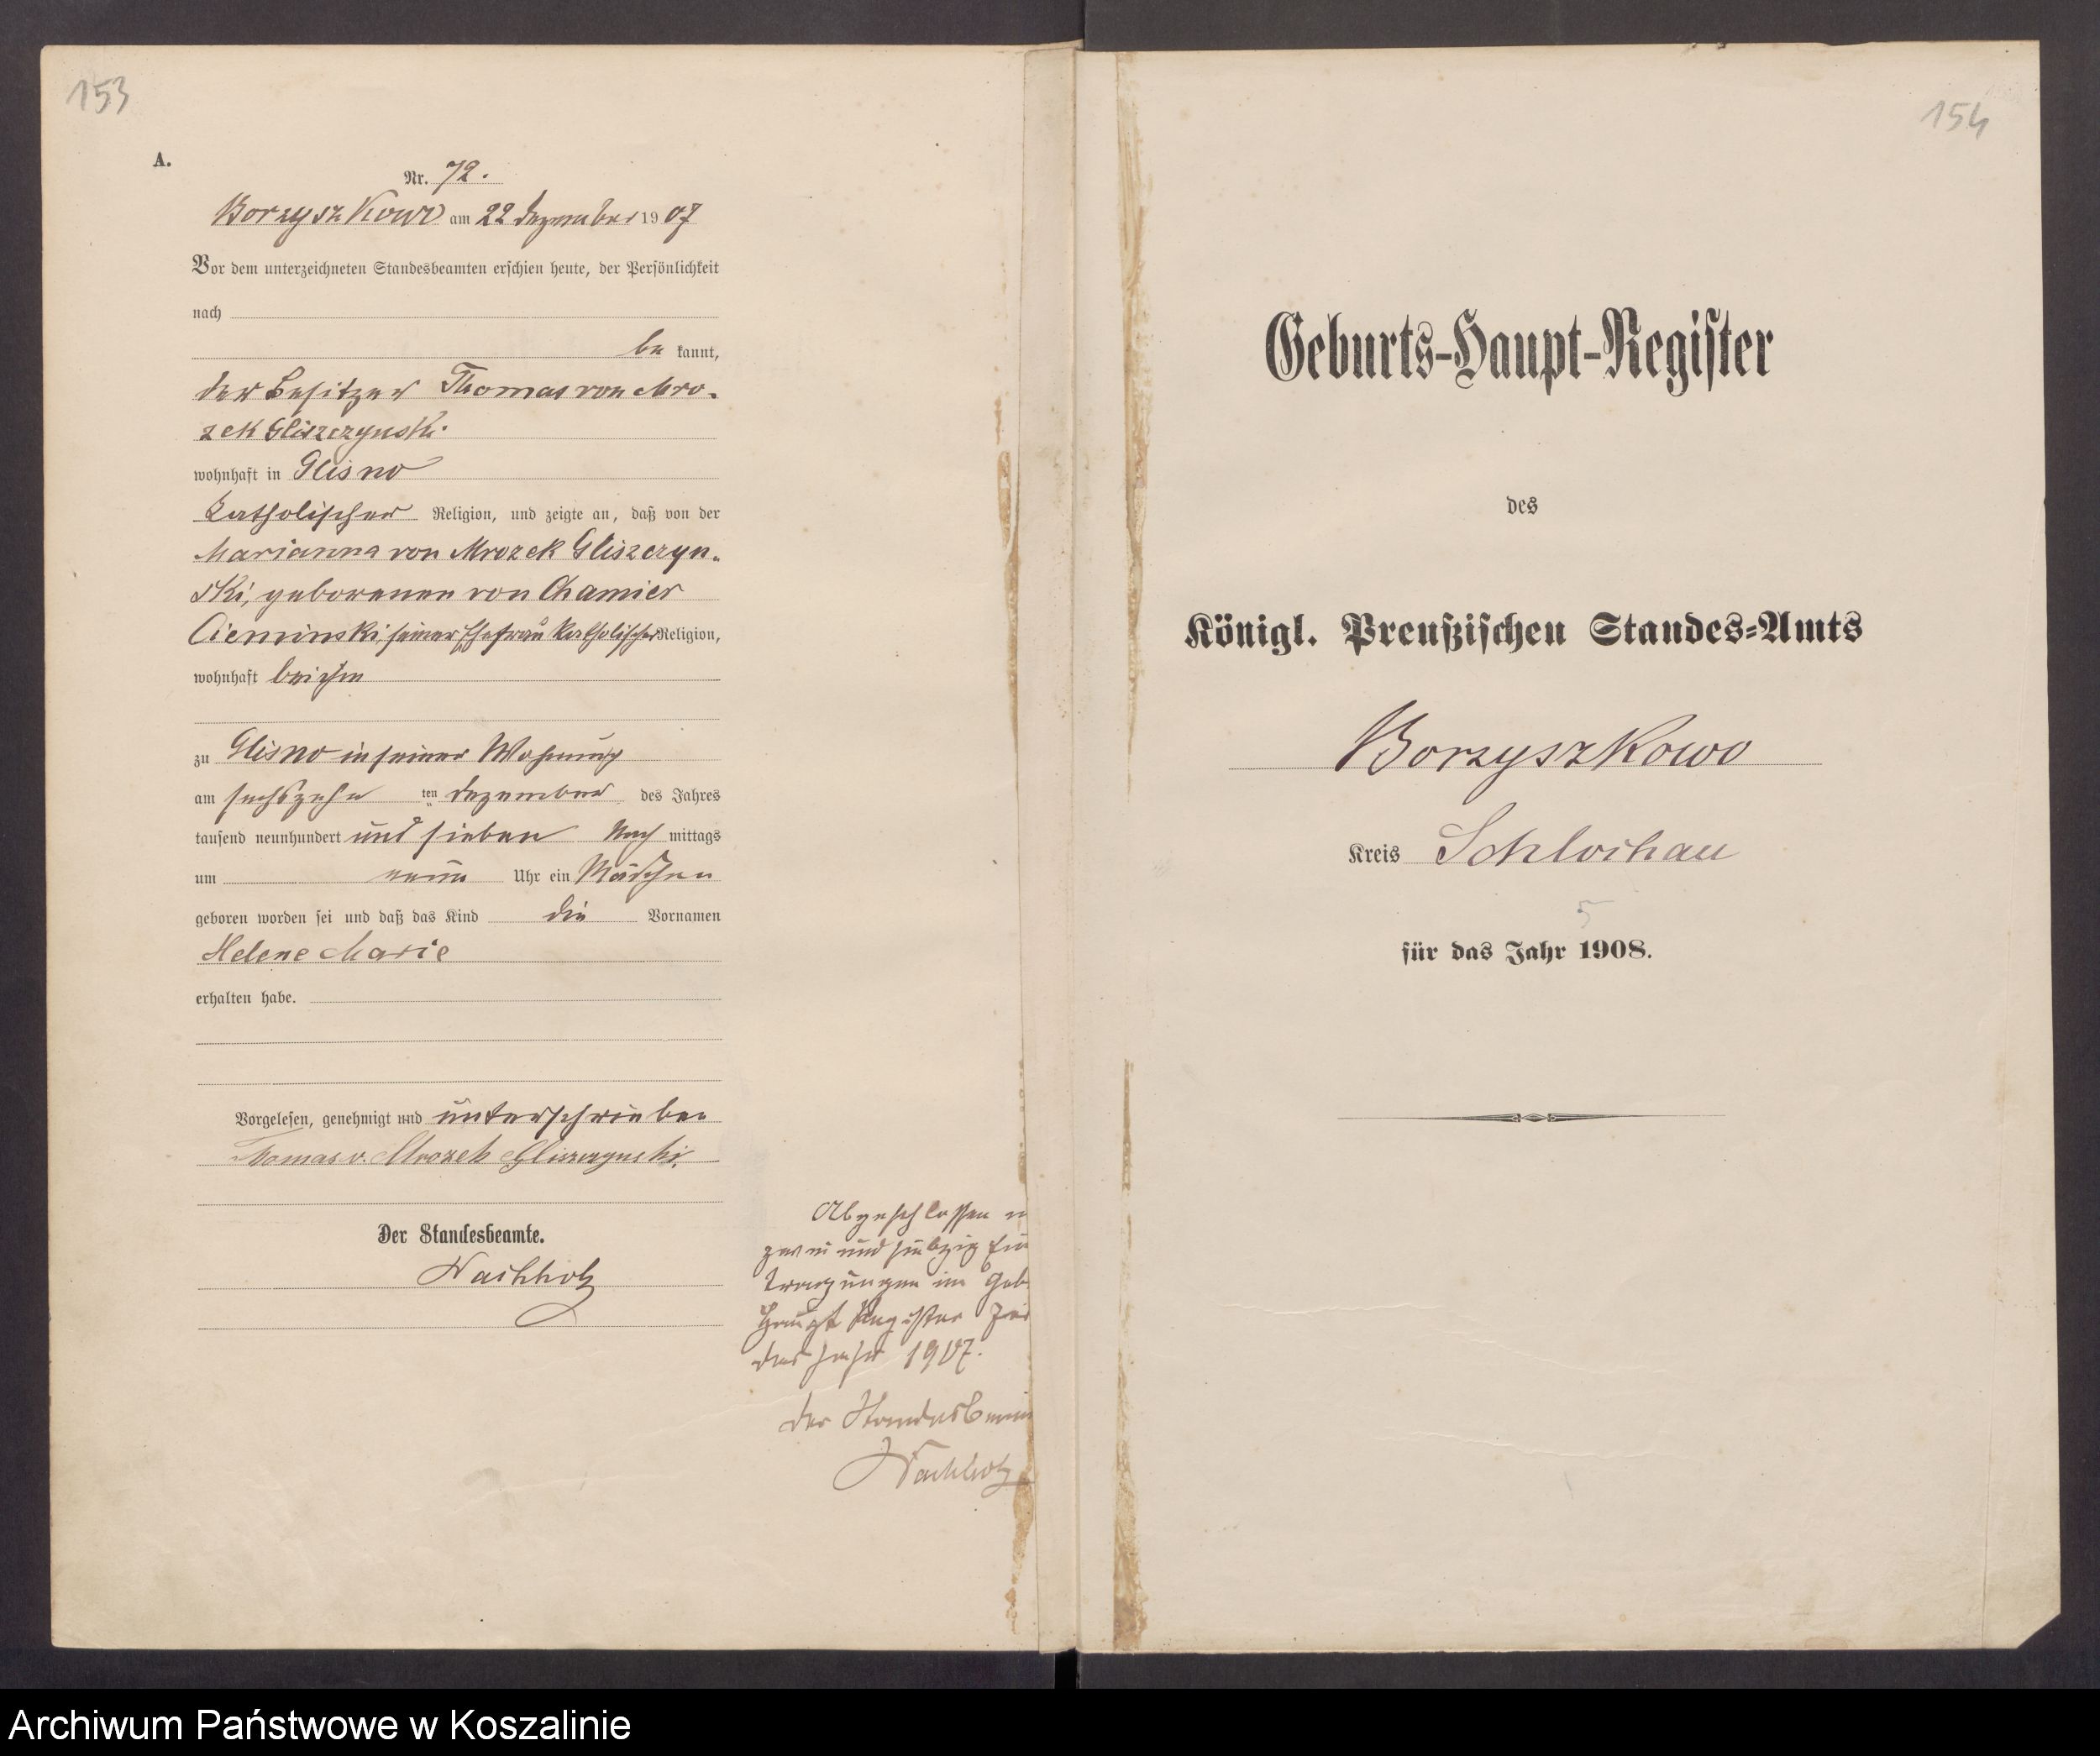 153
A.
Nr. 72.
Borzyszkowo am 22 Dezember 1907
Vor dem unterzeichneten Standesbeamten erschien heute, der Persönlichkeit
nach
be kannt,
der Besitzer Thomas von Mro-
zek Gliszczynski
wohnhaft in Glisno
Katholischer Religion, und zeigte an, daß von der
Marianna von Mrozek Gliszczyn-
ski, geborenen von Chamier
Cieminski, seiner Ehefrau katholischer Religion,
wohnhaft bei ihm
zu Glisno in seiner Wohnung
am sechszehn ten Dezember des Jahres
tausend neunhundert und sieben Nach mittags
um neun Uhr ein Mädchen
geboren worden sei und daß das Kind die Vornamen
Helene Marie
erhalten habe.
Vorgelesen, genehmigt und unterschrieben
Thomas v. Mrozek Gliszczynski.
Der Standesbeamte.
Nachholz
Abgeschlossen m
zwei und siebzig Ein
tragungen im Geb.
Haupt Register für
das Jahr 1907.
Der Standesbeam
Nachholz
154
Geburts-Haupt-Register
des
Königl. Preußischen Standes-Amts
Borzyszkowo
Kreis Schlochau
5
für das Jahr 1908.
Archiwum Państwowe w Koszalinie